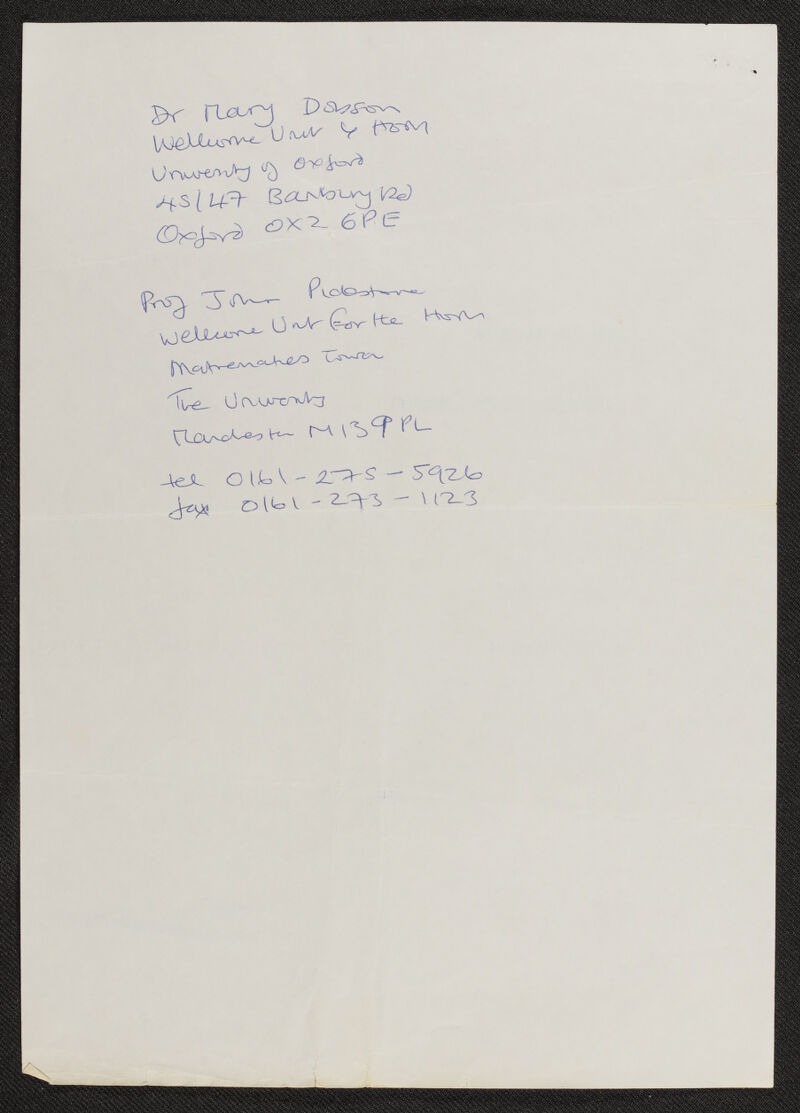 Dr Mary Dobson
Wellcome Unit of HoM
University of Oxford
45/47 Banbury Rd
Oxford OX2 6PE
Prof John Pickstone
Wellcome Unit for the HoM
Mathematics Tower
The University
Manchester M13 9PL
tel 0161-275-5926
fax 0161-273-1123